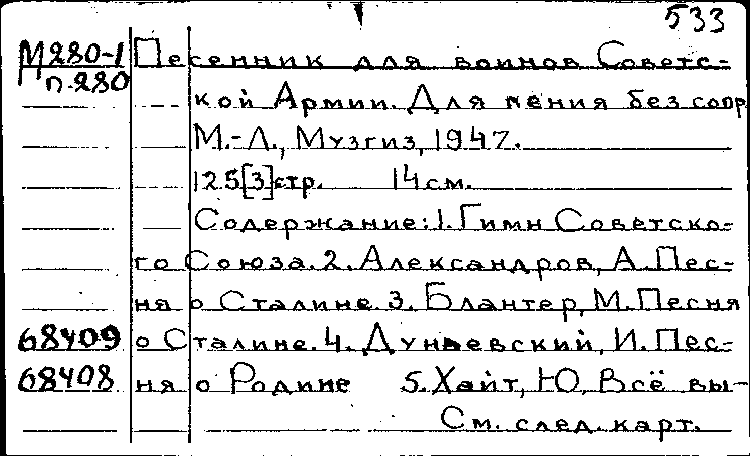 533
М280-1 Песенник для воинов Советс-
п.280
кой Армии. Для пения без сопр
М.-Л., Музгиз, 1947.
125[3]стр. 14 см.
Содержание: 1. Гимн Советско-
го Союза. 2. Александров, А. Пес-
ня о Сталине. 3. Блантер, М. Песня
68409 о Сталине. 4. Дунаевский, И. Пес-
68408 ня о Родине 5. Хайт, Ю. Всё вы-
См. след. карт.